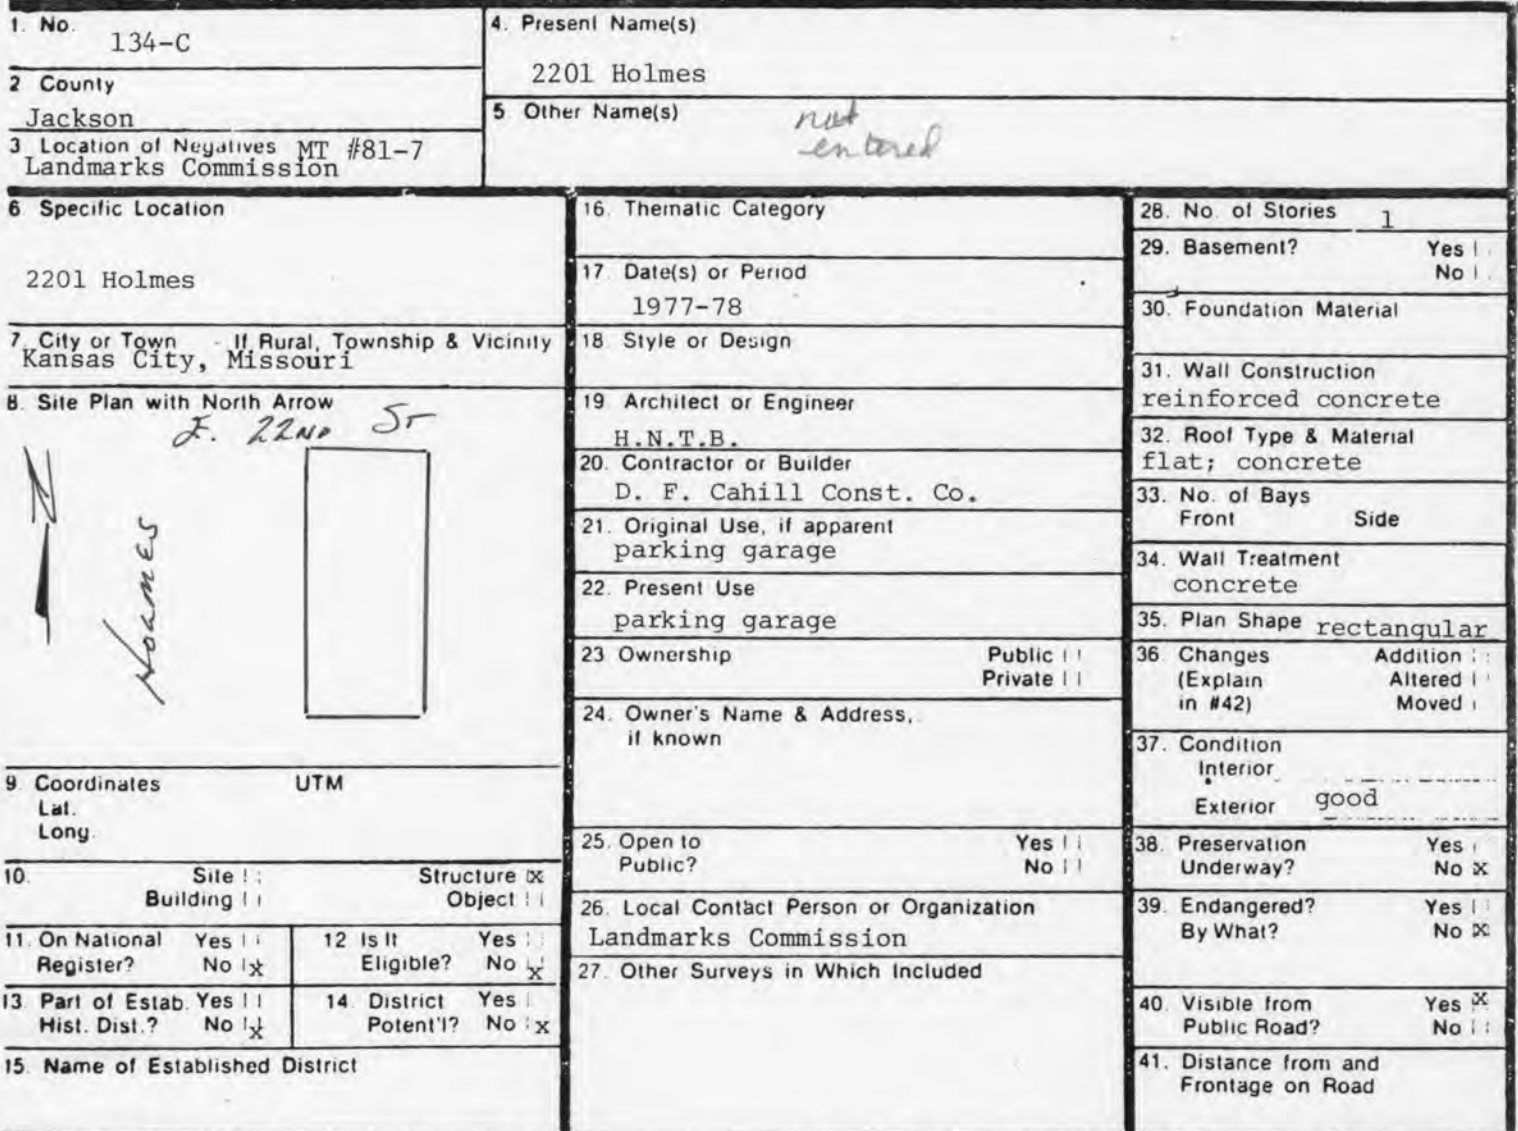 1. No.
134-C
2 County
Jackson
3 Location of Negatives MT #81-7
Landmarks Commission
4. Present Name(s)
2201 Holmes
5 Other Name(s)
not
entered
6 Specific Location
2201 Holmes
7. City or Town If Rural, Township & Vicinity
Kansas City, Missouri
8. Site Plan with North Arrow
E. 22ND ST
N
HOLMES
9. Coordinates UTM
Lat.
Long.
10. Site Structure X
Building Object
11. On National Yes
Register? No X
12 Is It Yes
Eligible? No X
13. Part of Estab. Yes
Hist. Dist.? No X
14. District Yes
Potent'l? No X
15. Name of Established District
16. Thematic Category
17. Date(s) or Period
1977-78
18. Style or Design
19 Architect or Engineer
H.N.T.B.
20. Contractor or Builder
D. F. Cahill Const. Co.
21. Original Use, if apparent
parking garage
22. Present Use
parking garage
23 Ownership Public
Private
24. Owner's Name & Address,
if known
25. Open to Yes
Public? No
26. Local Contact Person or Organization
Landmarks Commission
27. Other Surveys in Which Included
28. No. of Stories 1
29. Basement? Yes
No
30. Foundation Material
31. Wall Construction
reinforced concrete
32. Roof Type & Material
flat; concrete
33. No. of Bays
Front Side
34. Wall Treatment
concrete
35. Plan Shape rectangular
36. Changes Addition
(Explain Altered
in #42) Moved
37. Condition
Interior
Exterior good
38. Preservation Yes
Underway? No X
39. Endangered? Yes
By What? No X
40. Visible from Yes X
Public Road? No
41. Distance from and
Frontage on Road